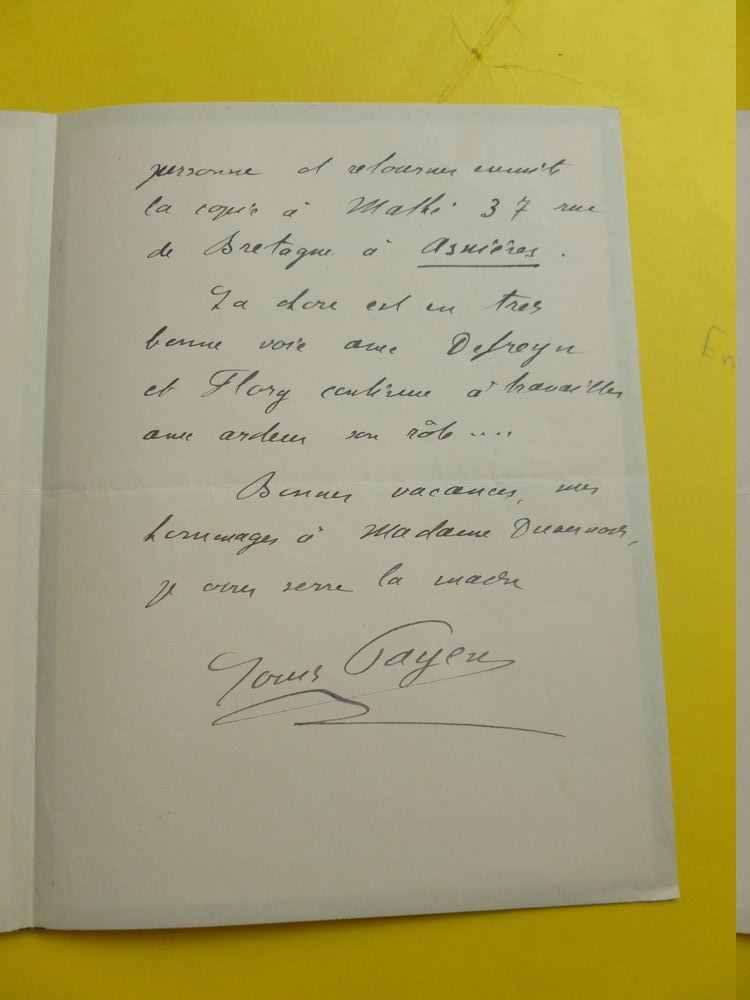 personne et retourner ensuite
la copie à Mathé 37 rue
de Bretagne à Asnières.
La chose est en très
bonne voie avec Defreyn
et Flory continue à travailler
avec ardeur son rôle....
Bonnes vacances, mes
hommages à Madame Duvernois,
je vous serre la main
Louis Payen
En